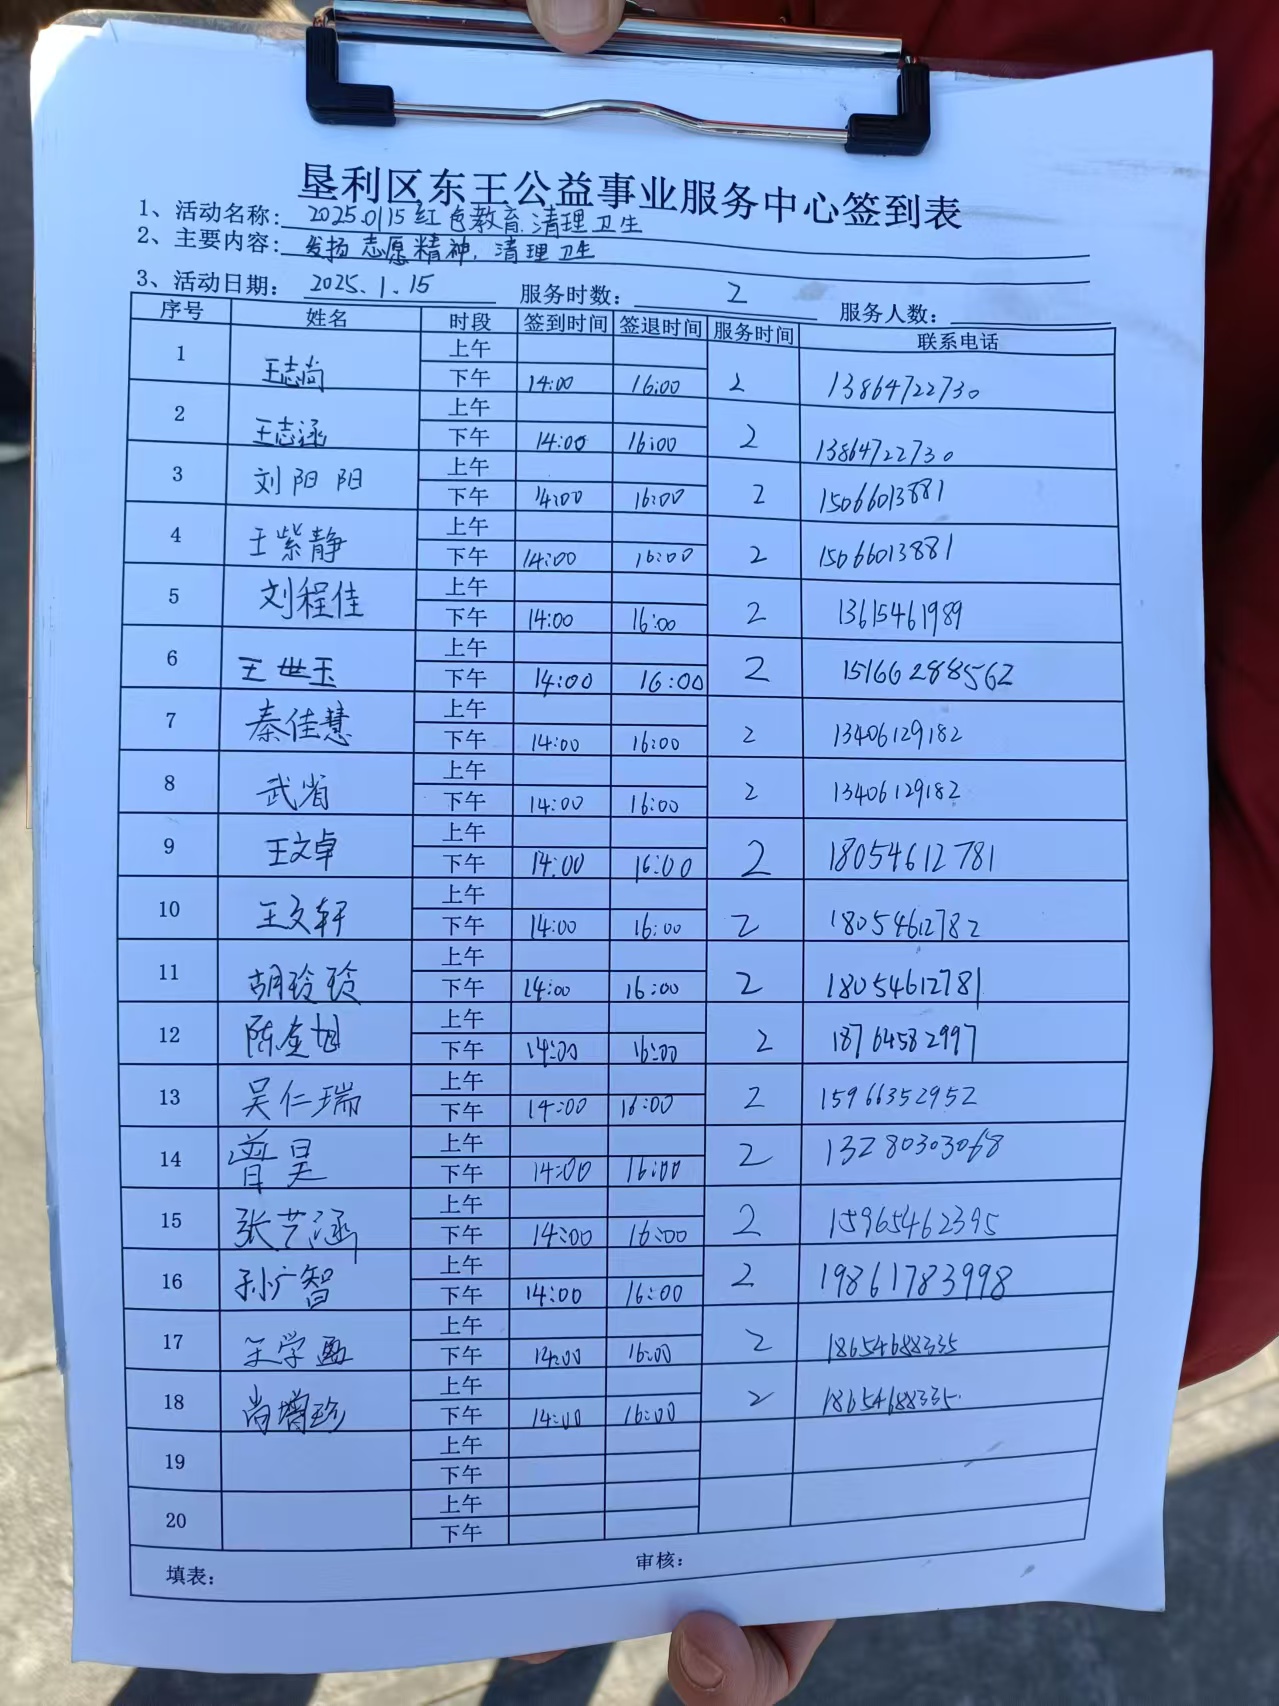 垦利区东王公益事业服务中心签到表
1、活动名称: 20250115红色教育.清理卫生
2、主要内容: 发扬志愿精神, 清理卫生
3、活动日期: 2025.1.15 服务时数: 2 服务人数:
序号 姓名 时段 签到时间 签退时间 服务时间 联系电话
1 王志尚 上午
下午 14:00 16:00 2 13864722730
2 王志涵 上午
下午 14:00 16:00 2 13864722730
3 刘阳阳 上午
下午 14:00 16:00 2 15066013881
4 王紫静 上午
下午 14:00 16:00 2 15066013881
5 刘程佳 上午
下午 14:00 16:00 2 13615461989
6 王世玉 上午
下午 14:00 16:00 2 15166288562
7 秦佳慧 上午
下午 14:00 16:00 2 13406129182
8 武省 上午
下午 14:00 16:00 2 13406129182
9 王文卓 上午
下午 14:00 16:00 2 18054612781
10 王文轩 上午
下午 14:00 16:00 2 18054612782
11 胡玲玲 上午
下午 14:00 16:00 2 18054612781
12 陈奎旭 上午
下午 14:00 16:00 2 18764582997
13 吴仁瑞 上午
下午 14:00 16:00 2 15966352952
14 曹昊 上午
下午 14:00 16:00 2 13280303068
15 张艺涵 上午
下午 14:00 16:00 2 15965462395
16 孙广智 上午
下午 14:00 16:00 2 19861783998
17 王学 上午
下午 14:00 16:00 2 18654688335
18 尚增珍 上午
下午 14:00 16:00 2 18654688335
19 上午
下午
20 上午
下午
填表: 审核: